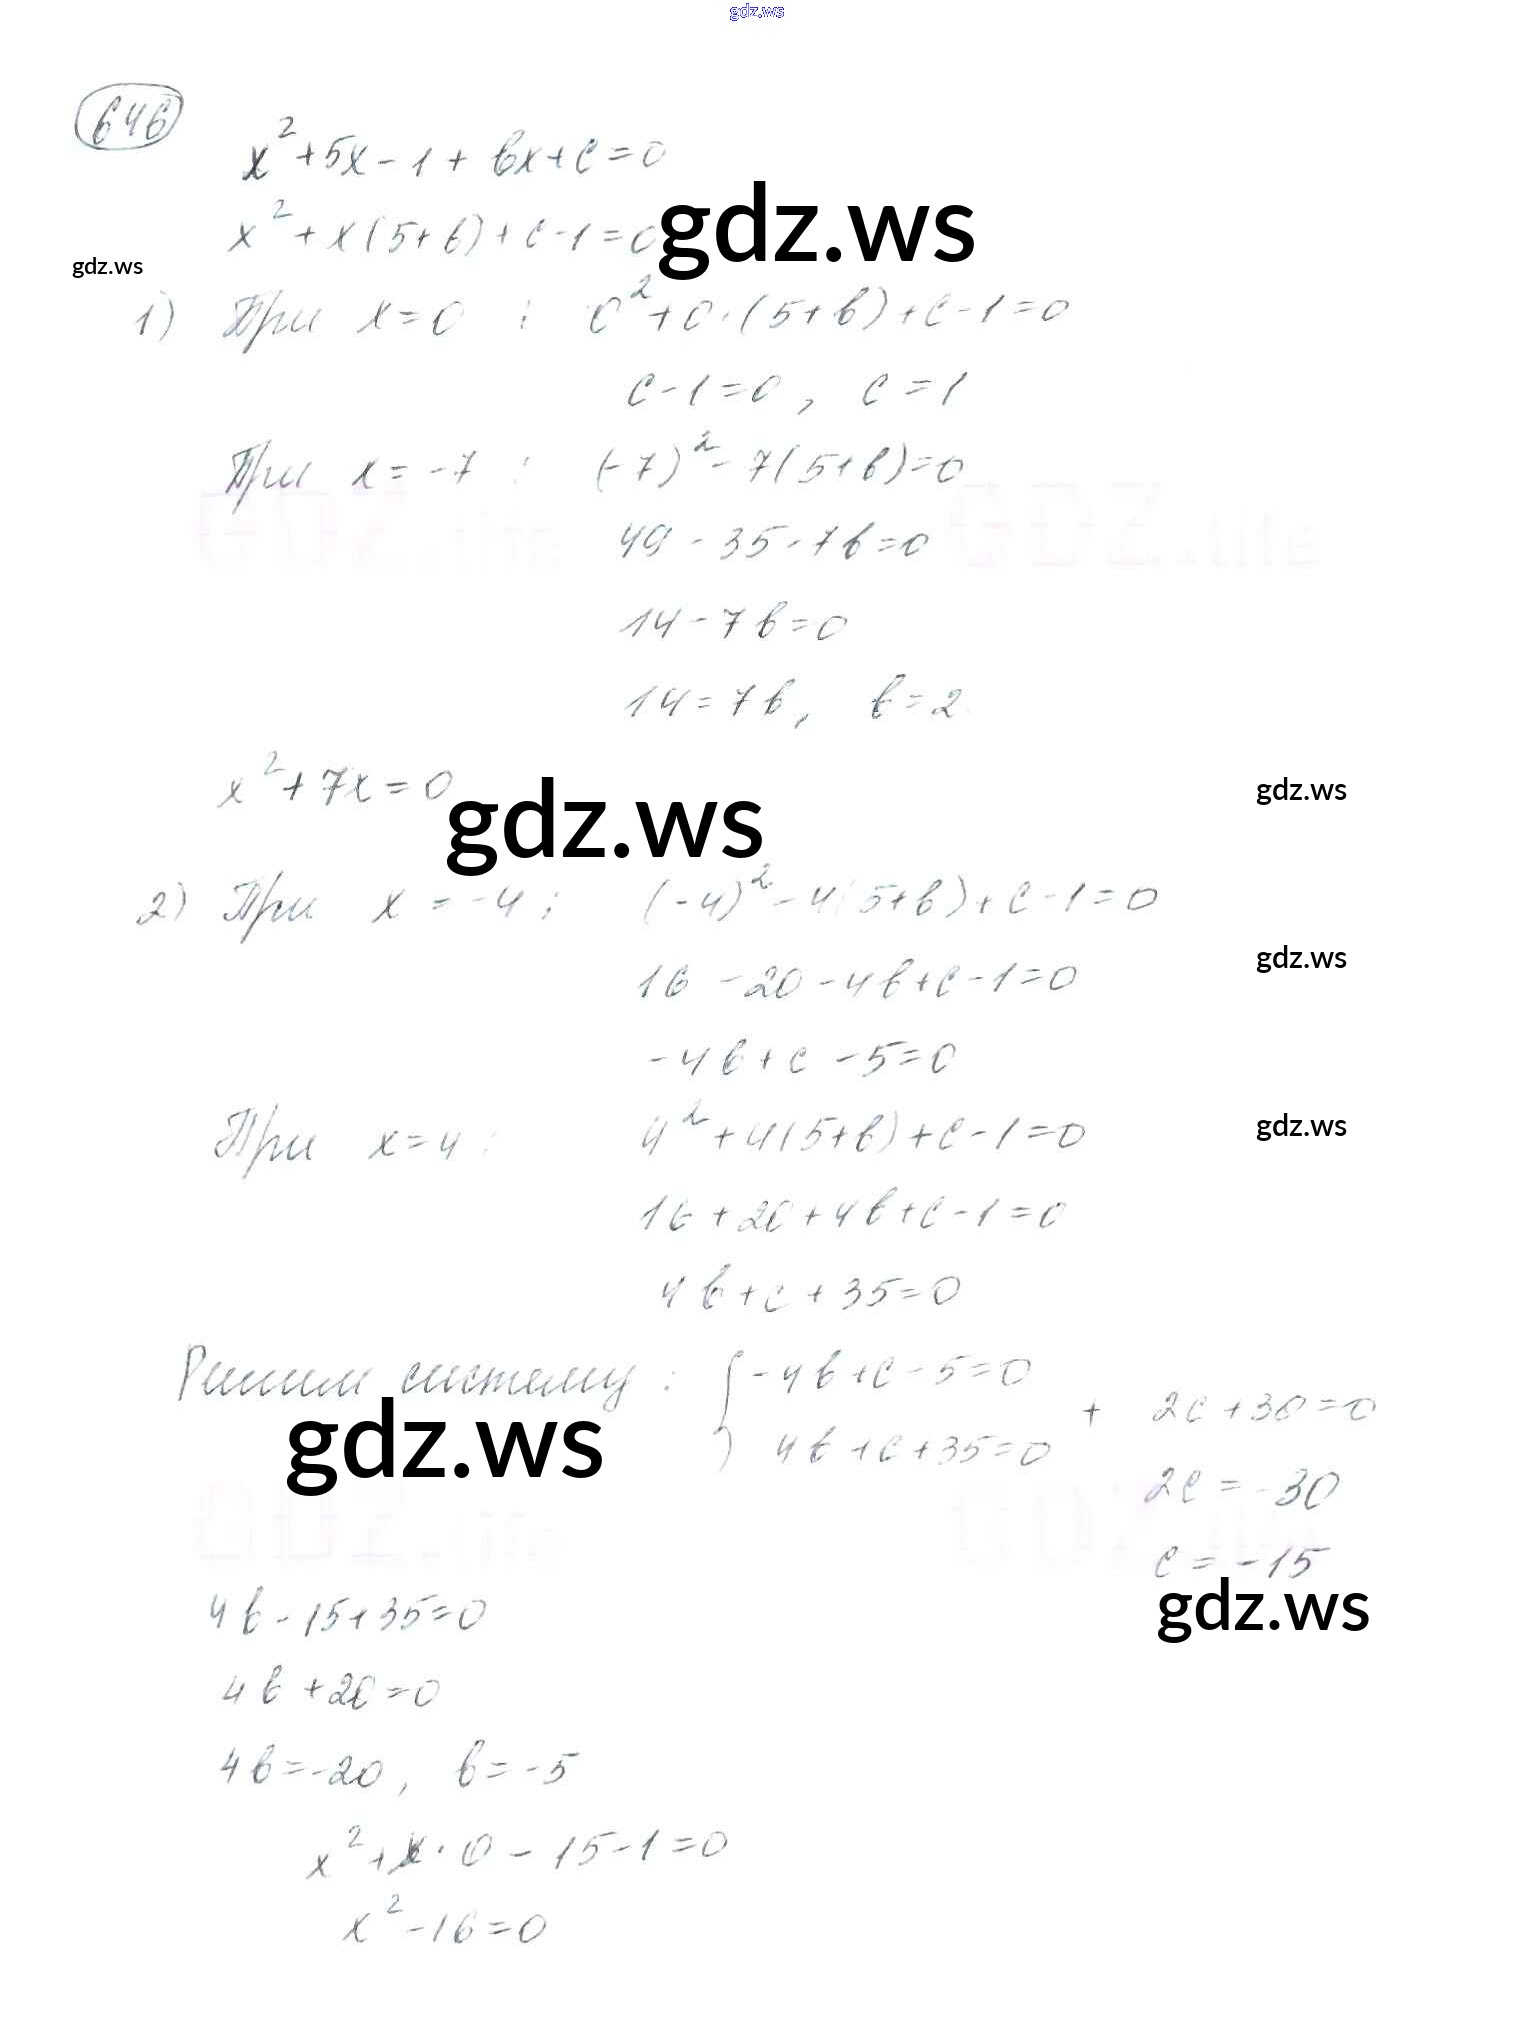 gdz.ws
646
x² + 5x - 1 + bx + c = 0
x² + x(5 + b) + c - 1 = 0
gdz.ws
gdz.ws
1) При x = 0 : 0² + 0·(5 + b) + c - 1 = 0
c - 1 = 0, c = 1
При x = -7 : (-7)² - 7(5 + b) = 0
GDZ.life GDZ.life
49 - 35 - 7b = 0
14 - 7b = 0
14 = 7b, b = 2
x² + 7x = 0
gdz.ws
gdz.ws
2) При x = -4 : (-4)² - 4(5 + b) + c - 1 = 0
gdz.ws
16 - 20 - 4b + c - 1 = 0
-4b + c - 5 = 0
При x = 4 : 4² + 4(5 + b) + c - 1 = 0
gdz.ws
16 + 20 + 4b + c - 1 = 0
4b + c + 35 = 0
Решим систему : { -4b + c - 5 = 0
4b + c + 35 = 0
+ 2c + 30 = 0
gdz.ws
2c = -30
GDZ.life GDZ.life
c = -15
gdz.ws
4b - 15 + 35 = 0
4b + 20 = 0
4b = -20, b = -5
x² + x · 0 - 15 - 1 = 0
x² - 16 = 0